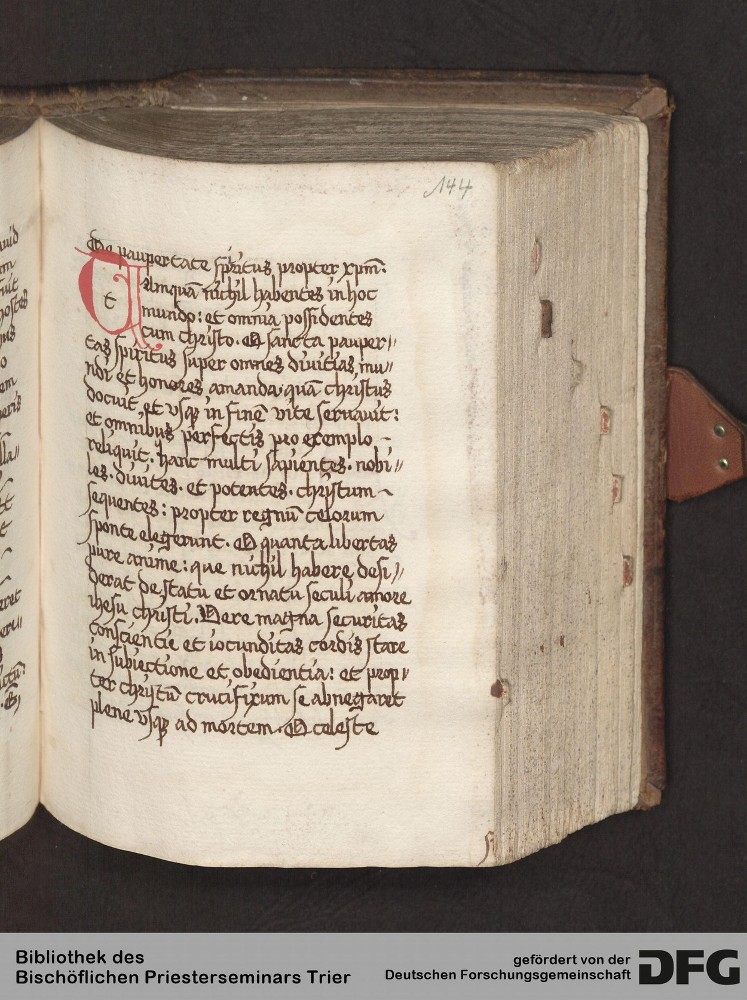 144
De paupertate spiritus propter xpm̄.
Tamquā nichil habentes in hoc
t
mundo: et omnia possidentes
cum christo. O sancta pauper//
tas spiritus super omnes diuitias mu//
ndi et honores amanda. quā christus
docuit, et vsqꝫ in finē vite seruauit:
et omnibus perfectis pro exemplo
reliquit. hanc multi sapientes. nobi//
les. diuites. et potentes. christum
sequentes: propter regnū celorum
sponte elegerunt. O quanta libertas
pure anime: que nichil habere desi//
derat de statu et ornatu seculi amore
ihesu christi. Vere magna securitas
conscientie et iocunditas cordis stare
in subiectione et obedientia: et prop//
ter christū crucifixum se abnegaret
plene vsqꝫ ad mortem. O celeste
Bibliothek des
Bischöflichen Priesterseminars Trier
gefördert von der
Deutschen Forschungsgemeinschaft
DFG